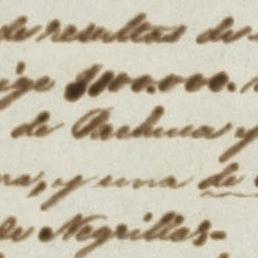 de resultas de
de Pachuca y
na, y una de
de Negrillas-